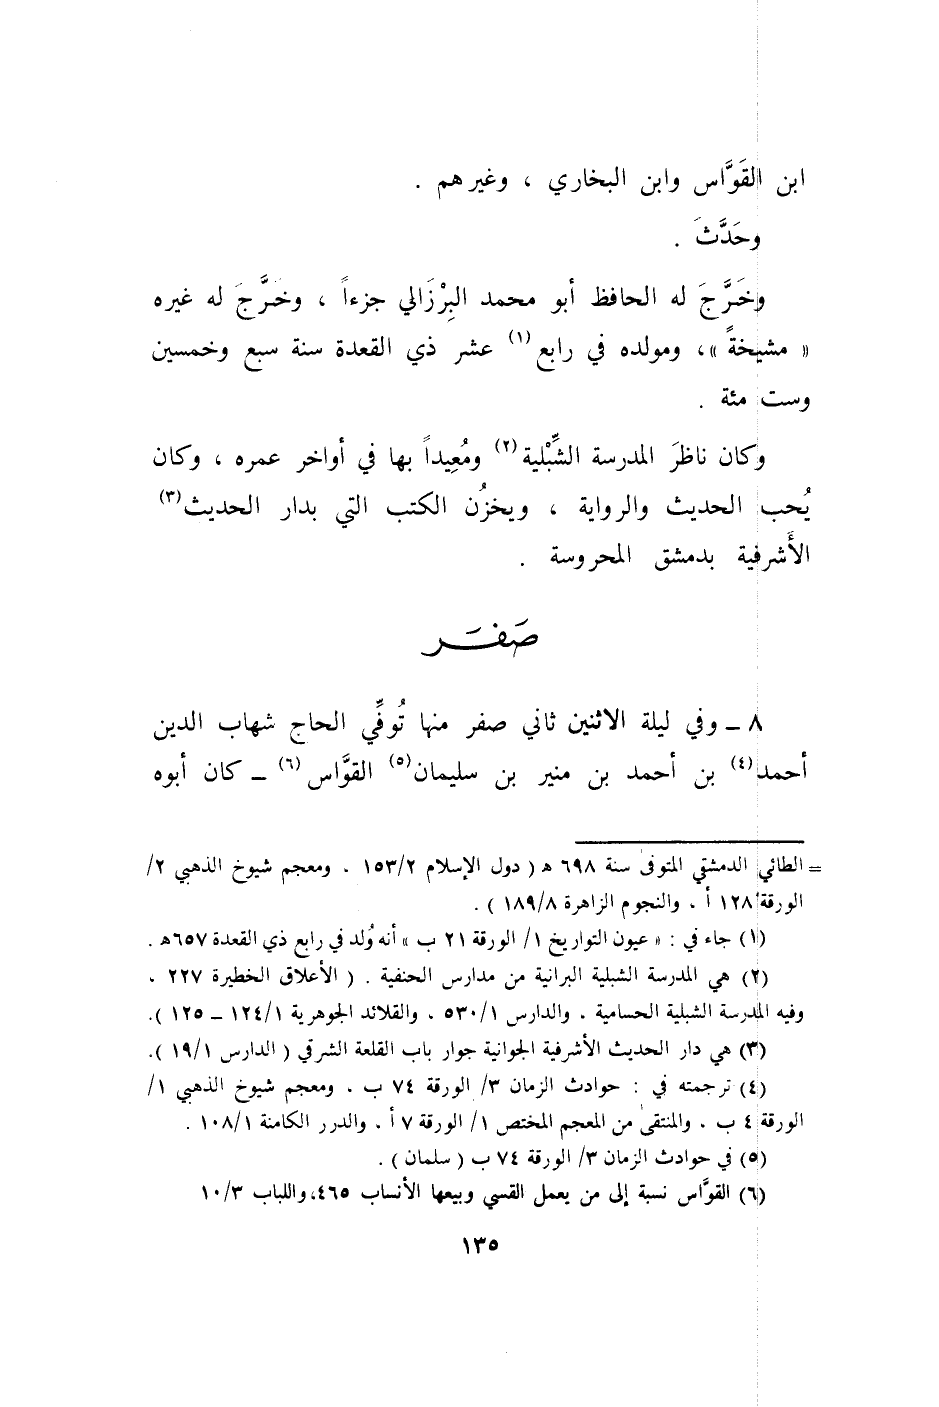 ابن القَوَّاس وابن البخاري ، وغيرهم .
وحَدَّثَ .
وخَرَّجَ له الحافظ أبو محمد البِرْزَالي جزءاً ، وخَرَّجَ له غيره
« مشيخةً »، ومولده في رابع(١) عشر ذي القعدة سنة سبع وخمسين
وست مئة .
وكان ناظرَ المدرسة الشِّبْلية(٢) ومُعِيداً بها في أواخر عمره ، وكان
يُحب الحديث والرواية ، ويخزُن الكتب التي بدار الحديث(٣)
الأَشرفية بدمشق المحروسة .
صَفَر
٨ ـ وفي ليلة الاثنين ثاني صفر منها تُوفِّي الحاج شهاب الدين
أحمد(٤) بن أحمد بن منير بن سليمان(٥) القوَّاس(٦) ـ كان أبوه
= الطائي الدمشقي المتوفى سنة ٦٩٨ هـ ( دول الإسلام ١٥٣/٢ . ومعجم شيوخ الذهبي ٢/
الورقة ١٢٨ أ . والنجوم الزاهرة ١٨٩/٨ ) .
(١) جاء في : « عيون التواريخ ١/ الورقة ٢١ ب » أنه وُلد في رابع ذي القعدة ٦٥٧هـ .
(٢) هي المدرسة الشبلية البرانية من مدارس الحنفية . ( الأعلاق الخطيرة ٢٢٧ .
وفيه المدرسة الشبلية الحسامية . والدارس ٥٣٠/١ . والقلائد الجوهرية ١٢٤/١ ـ ١٢٥ ).
(٣) هي دار الحديث الأشرفية الجوانية جوار باب القلعة الشرقي ( الدارس ١٩/١ ).
(٤) ترجمته في : حوادث الزمان ٣/ الورقة ٧٤ ب . ومعجم شيوخ الذهبي ١/
الورقة ٤ ب . والمنتقى من المعجم المختص ١/ الورقة ٧ أ . والدرر الكامنة ١٠٨/١ .
(٥) في حوادث الزمان ٣/ الورقة ٧٤ ب ( سلمان ) .
(٦) القوَّاس نسبة إلى من يعمل القسي وبيعها الأنساب ٤٦٥، واللباب ١٠/٣
١٣٥